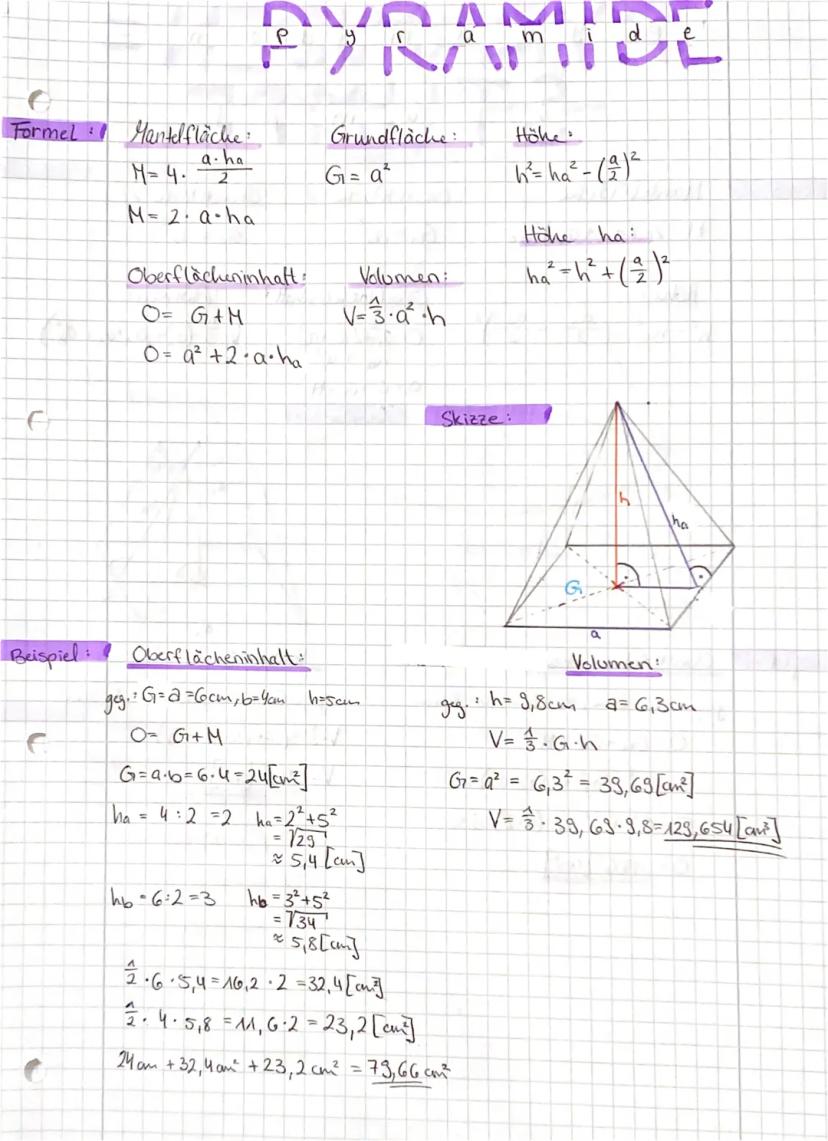 PYRAMIDE
P y r a m i d e
Formel:
Mantelfläche:
M = 4 · a·ha/2
M = 2 · a · ha
Grundfläche:
G = a²
Höhe:
h² = ha² - (a/2)²
Höhe ha:
ha² = h² + (a/2)²
Oberflächeninhalt:
O = G + M
O = a² + 2 · a · ha
Volumen:
V = 1/3 · a² · h
Skizze:
h
ha
G
a
Beispiel:
Oberflächeninhalt:
geg.: G = a = 6cm, b = 4cm h = 5cm
O = G + M
G = a · b = 6 · 4 = 24 [cm²]
ha = 4 : 2 = 2 ha = 2² + 5²
= √29
≈ 5,4 [cm]
hb = 6 : 2 = 3 hb = 3² + 5²
= √34
≈ 5,8 [cm]
1/2 · 6 · 5,4 = 16,2 · 2 = 32,4 [cm²]
1/2 · 4 · 5,8 = 11,6 · 2 = 23,2 [cm²]
24cm + 32,4cm² + 23,2cm² = 79,66 cm²
Volumen:
geg.: h = 9,8cm a = 6,3cm
V = 1/3 · G · h
G = a² = 6,3² = 39,69 [cm²]
V = 1/3 · 39,69 · 9,8 = 129,654 [cm³]